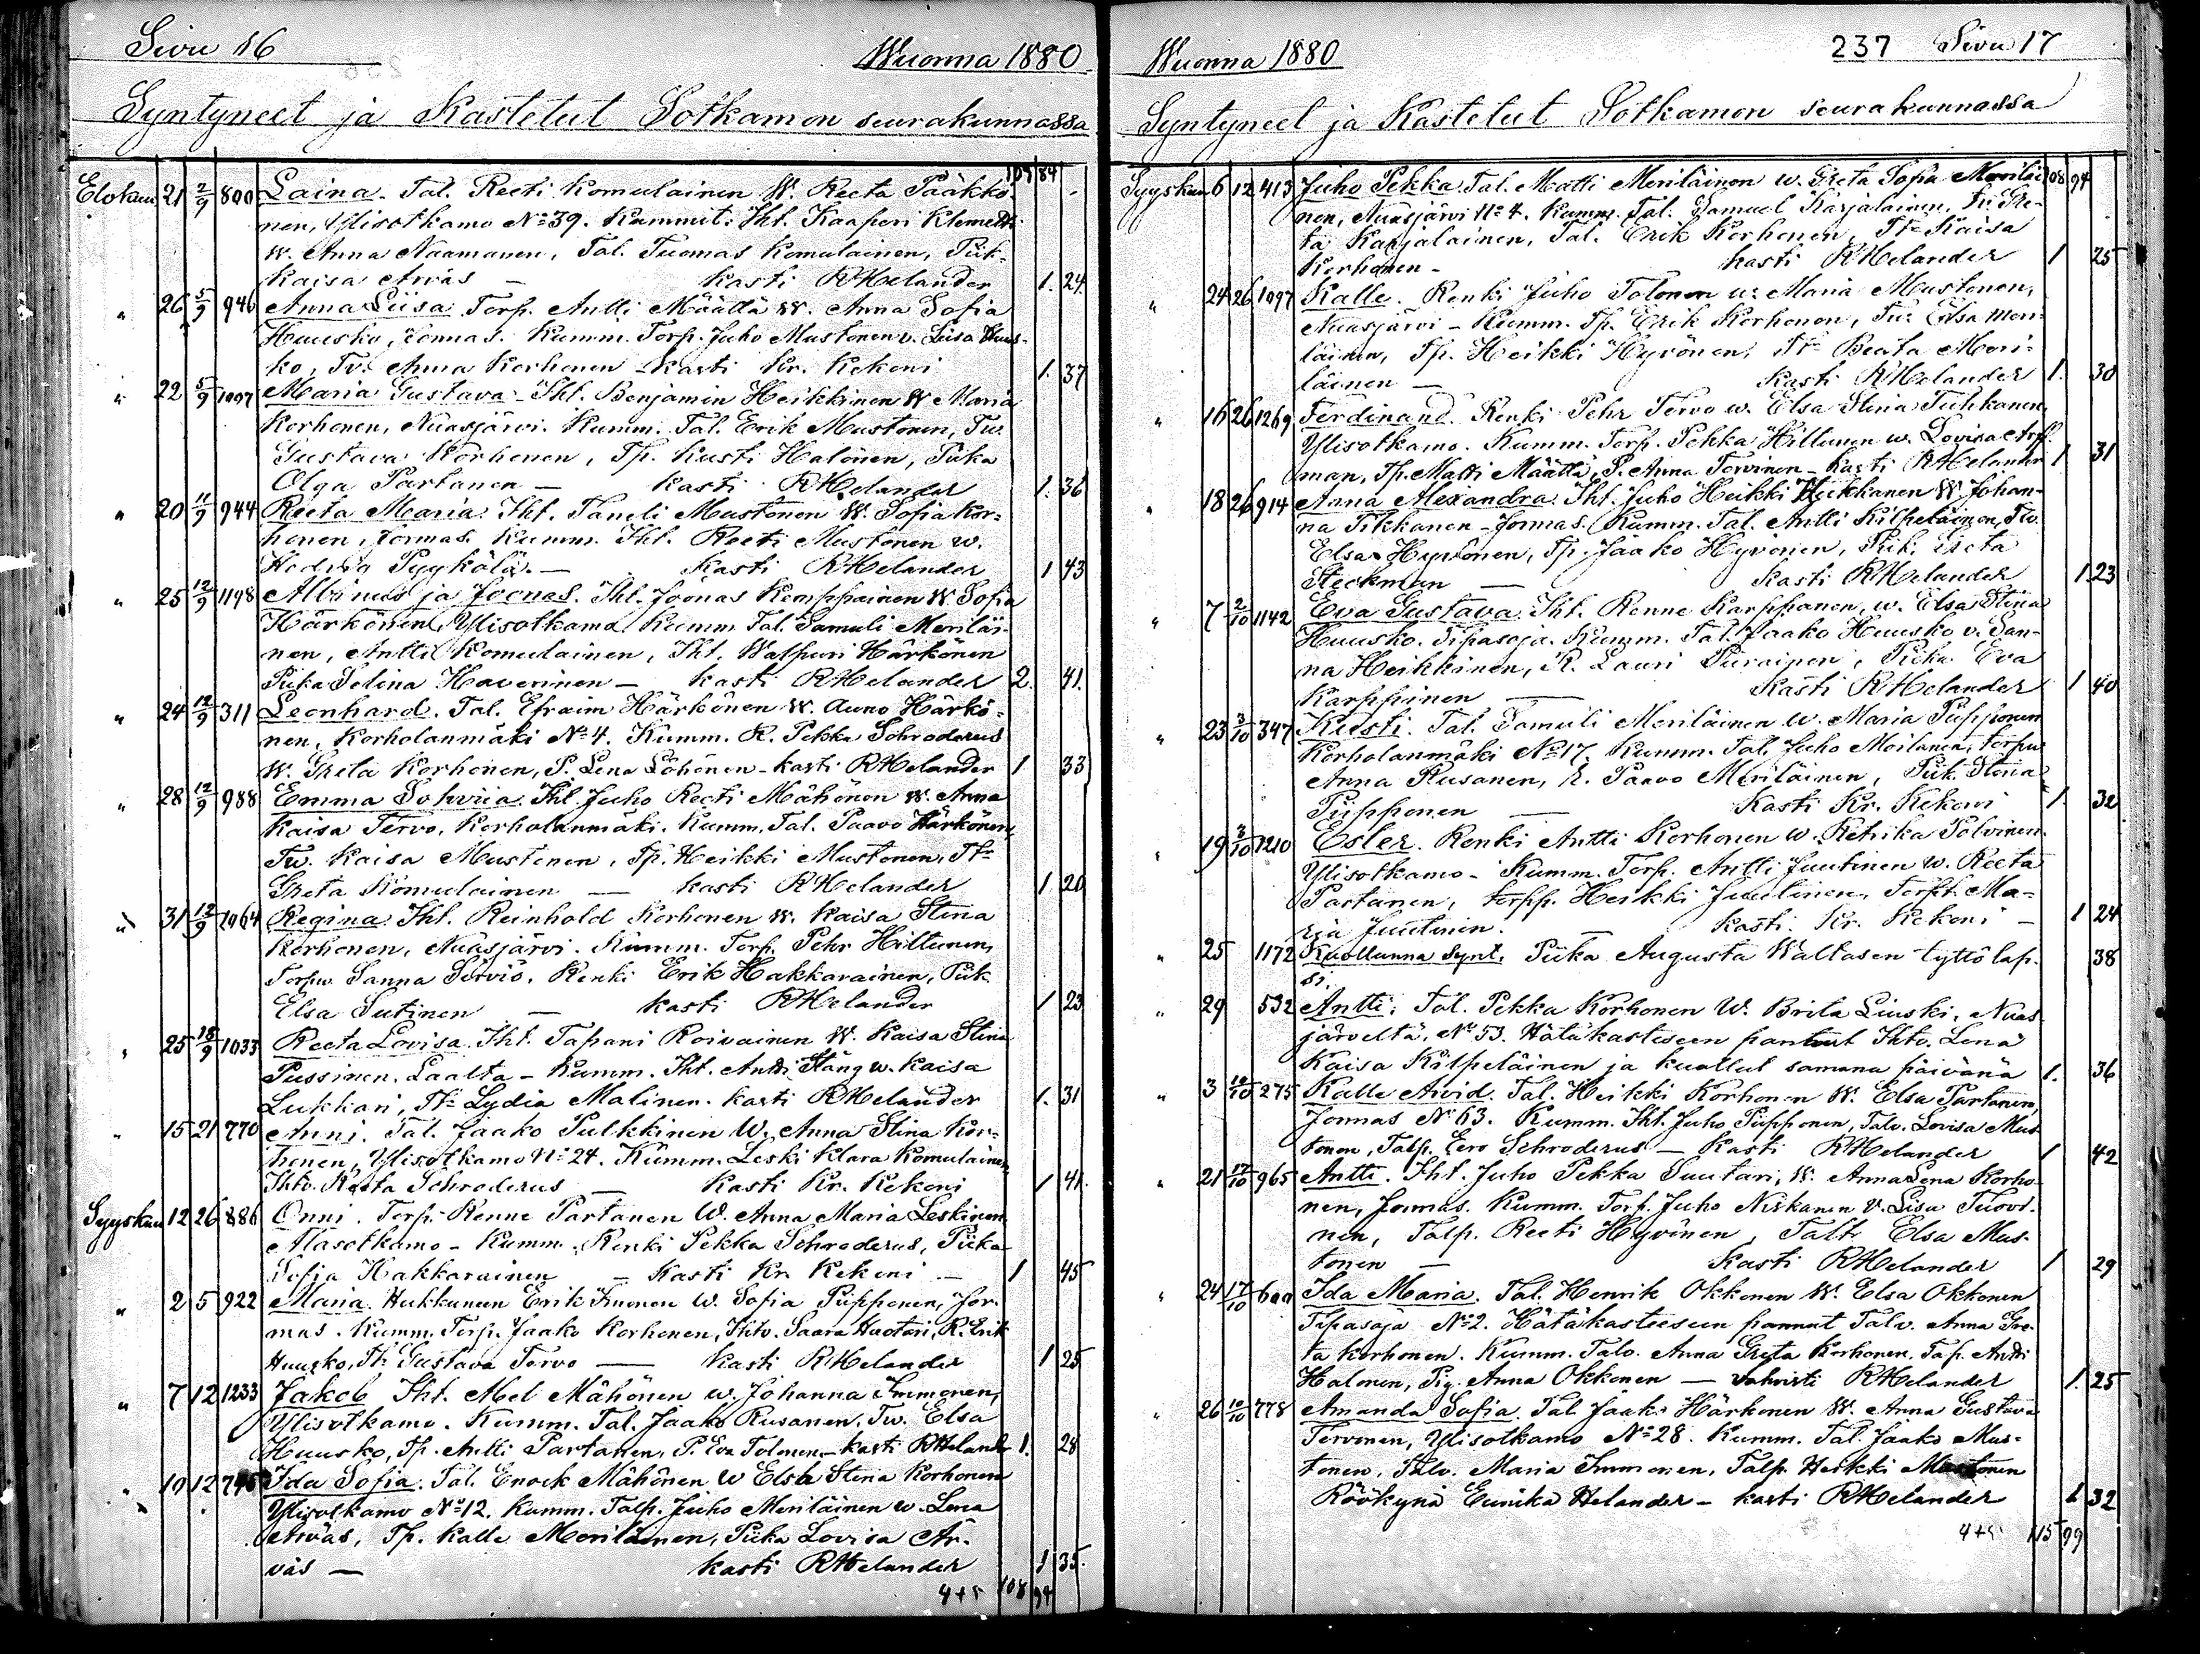 Sivu 16
Wuonna 1880
Syntyneet ja Kastetut Sotkamon seurakunnassa
103 84
Elokuu 21 2/9 800 Laina. Tal. Reeti Komulainen W. Reeta Pääkkö-
nen, Ylisotkamo No 39. Kummit: Iht. Kaaperi Klemetti
w. Anna Naamanen, Tal. Tuomas Komulainen, Piik.
Kaisa Arväs — kasti RHelander 1. 24.
" 26 5/9 946 Anna Liisa Torp. Antti Määttä W. Anna Sofia
Huusko, Jormas. Kumm. Torp. Juho Mustonen v. Liisa Huus-
ko, Tv. Anna Korhonen - kasti Kr. Kekoni 1. 37
" 22 5/9 1097 Maria Gustava - Iht. Benjamin Heikkinen W Maria
Korhonen, Nuasjärvi. Kumm. Tal. Erik Mustonen, Tw.
Gustava Korhonen, Tp. Kusti Halonen, Piika
Olga Partanen — kasti RHelander 1. 36
" 20 11/9 944 Reeta Maria. Iht. Taneli Mustonen W. Sofia Kor-
honen, Jormas. Kumm. Iht. Reeti Mustonen w.
Hedvig Pyykölä. — Kasti RHelander 1 43
" 25 12/9 1198 Albinus ja Joonas. Iht. Joonas Kemppainen W. Sofia
Härkönen, Ylisotkamo. Kumm. Tal. Samuli Meriläi-
nen, Antti Komulainen, Iht. Walpuri Härkönen
Piika Selina Haverinen — kasti RHelander 2. 41.
" 24 12/9 311 Leonhard. Tal. Efraim Härkönen W. Auno Härkö-
nen, Korholanmäki No 4. Kumm. R. Pekka Schroderus
W. Greta Korhonen, P. Lena Löhönen - kasti RHelander 1 33
" 28 12/9 988 Emma Sohviia. Iht. Juho Reeti Mähönen W. Anna
Kaisa Tervo, Korholanmäki. Kumm. Tal. Paavo Härkönen
Tw. Kaisa Mustonen, Tp. Heikki Mustonen, Tt.
Greta Komulainen — kasti RHelander 1 20
" 31 12/9 1064 Regina Iht. Reinhold Korhonen W. Kaisa Stina
Korhonen, Nuasjärvi. Kumm. Torp. Pehr Hiltunen,
Torpw. Sanna Servio. Renki Erik Hakkarainen, Piik.
Elsa Sutinen — kasti RHelander 1 23
" 25 18/9 1033 Reeta Lovisa. Iht. Tapani Roivainen W. Kaisa Stina
Pussinen. Laalta - Kumm. Iht. Antti Stång w. Kaisa
Lukkari, Tt. Lydia Malinen. kasti RHelander 1. 31
" 15 21 770 Anni. Tal. Jaako Pulkkinen W. Anna Stina Kor-
honen, Ylisotkamo No 24. Kumm. Leski Klara Komulainen
Ihtv. Reeta Schroderus — Kasti Kr. Kekoni 1 41.
Syyskuu 12 26 886 Onni. Torp. Renne Partanen W. Anna Maria Leskinen
Alasotkamo - Kumm. Renki Pekka Schroderus, Piika
Sofia Hakkarainen — Kasti Kr. Kekoni — 1 45
" 2 5 922 Maria. Hukkuneen Erik Immonen W. Sofia Piipponen, Jor-
mas. Kumm. Torp. Jaako Korhonen, Ihtv. Saara Huotari, R. Erik
Huusko, Tt. Gustava Tervo — Kasti RHelander 1 25
" 7 12 1233 Jakob Iht. Abel Mähönen w. Johanna Immonen,
Ylisotkamo. Kumm. Tal. Jaako Rusanen, Tw. Elsa
Huusko, Tp. Antti Partanen, P. Eva Tolonen - kasti RHelander 1. 28
" 10 12 746 Ida Sofia. Tal. Enock Mähönen W Elsa Stina Korhonen
Ylisotkamo No 12. Kumm. Talp. Juho Meriläinen w. Lena
Arväs, Tp. Kalle Meriläinen, Piika Lovisa Är-
väs — kasti RHelander 1 35.
4+5 108 94
Wuonna 1880
237 Sivu 17
Syntyneet ja Kastetut Sotkamon seurakunnassa
Syyskuu 6 12 413 Juho Pekka Tal. Matti Meriläinen w. Greta Sofia Meriläi- 108 94
nen, Nuasjärvi No 4. Kumm. Tal. Samuel Karjalainen. Gre-
ta Karjalainen, Tal. Erik Korhonen, Tt. Kaisa
Korhonen - kasti RHelander 1 25
" 24 26 1097 Kalle. Renki Juho Tolonen w. Maria Mustonen,
Nuasjärvi - Kumm. Tp. Erik Korhonen, Tw. Elsa Meri-
läinen, Tp. Heikki Hyvönen, Tt. Beata Meri-
läinen — Kasti RHelander 1. 30
" 16 26 1269 Ferdinand. Renki Pehr Tervo w. Elsa Stina Tuhkanen,
Ylisotkamo. Kumm. Torp. Pekka Hiltunen w. Lovisa Arf-
man, Tp. Matti Määttä, P. Anna Tervinen - Kasti RHelander 1 31
" 18 26 914 Anna Alexandra. Iht. Juho Heikki Heikkanen W. Johan-
na Pikkanen - Jormas. Kumm. Tal. Antti Kilpeläinen, Tw.
Elsa Hyvönen, Tp. Jaako Hyvönen, Piik. Greta
Steckman — Kasti RHelander 1 23
" 7 2/10 1142 Eva Gustava. Iht. Renne Karppanen, w. Elsa Stina
Huusko. Tipasoja. Kumm. Tal. Jaako Huusko v. San-
na Heikkinen, R. Lauri Piirainen, Piika Eva
Karppinen — Kasti RHelander 1 40
" 23 3/10 347 Kusti. Tal. Samuli Meriläinen w. Maria Piipponen
Korholanmäki No 17. Kumm. Tal. Juho Moilanen, torpw.
Anna Rusanen, R. Paavo Meriläinen, Piik. Stina
Piipponen — Kasti Kr. Kekoni 1. 32
" 19 3/10 1210 Ester. Renki Antti Korhonen w. Retrika Polvinen
Ylisotkamo - Kumm. Torp. Antti Juutinen w. Reeta
Partanen, torpp. Heikki Juutinen, Torpt. Ma-
ria Juutinen. — kasti. Kr. Kekoni - 1 24
" 25 1172 Kuolluna synt. Piika Augusta Waltasen tyttölap- 38
si.
" 29 532 Antti. Tal. Pekka Korhonen W. Brita Liuski, Nuas-
järveltä, No 53. Hätäkasteseen pannut Ihtv. Lena
Kaisa Kilpeläinen ja kuollut samana päivänä 1. 36
" 3 10/10 275 Kalle Arvid. Tal. Heikki Korhonen W. Elsa Partanen,
Jormas No 63. Kumm. Iht. Juho Piipponen, Talv. Lovisa Mus-
tonen, Talp. Eero Schroderus — Kasti RHelander 1 42
" 21 17/10 965 Antti. Iht. Juho Pekka Suutari, W. Anna Lena Korho-
nen, Jormas. Kumm. Torp. Juho Niskanen v. Lisa Tuovi-
nen, Talp. Reeti Hyvönen, Talt. Elsa Mus-
tonen — Kasti RHelander 1 29
" 24 17/10 600 Ida Maria. Tal. Henrik Okkonen W. Elsa Okkonen
Tipasoja No 2. Hätäkasteeseen pannut Talv. Anna Gre-
ta Korhonen. Kumm. Talv. Anna Greta Korhonen, Tap. Antti
Halonen, Pig. Anna Okkonen — vahvisti RHelander 1. 25
" 26 10/10 778 Amanda Sofia. Tal. Jaako Härkönen W. Anna Gustava
Tervonen, Ylisotkamo No 28. Kumm. Tal. Jaako Mus-
tonen, Talv. Maria Immonen, Talp. Heikki Mustonen
Röökynä Eunika Helander - kasti RHelander 1 32
4+5 115 99